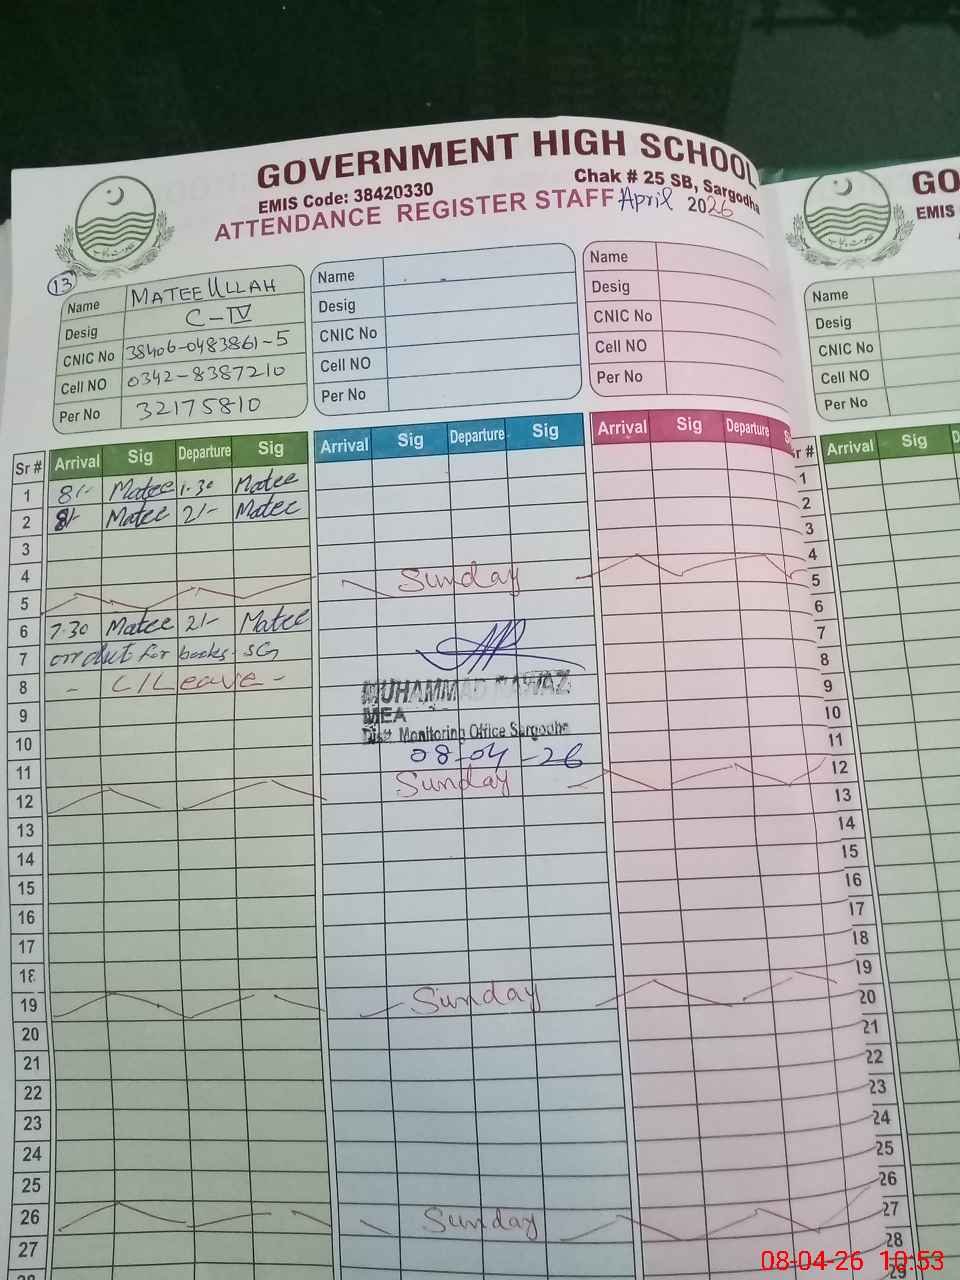 GOVERNMENT HIGH SCHOOL
EMIS Code: 38420330 Chak # 25 SB, Sargodha
ATTENDANCE REGISTER STAFF April 2026
13
Name MATEEULLAH
Desig C-IV
CNIC No 38406-0483861-5
Cell NO 0342-8387210
Per No 32175810
Name
Desig
CNIC No
Cell NO
Per No
Name
Desig
CNIC No
Cell NO
Per No
Sr # Arrival Sig Departure Sig Arrival Sig Departure Sig Arrival Sig Departure
1 8/- Matee 1.30 Matee
2 8/- Matee 2/- Matee
3
4
5 Sunday
6 7.30 Matee 2/- Matee
7 for books
8 - C/Leave -
MUHAMMAD NAWAZ
MEA
Dist. Monitoring Office Sargodha
08-04-26
9
10
11
12 Sunday
13
14
15
16
17
18
19 Sunday
20
21
22
23
24
25
26 Sunday
27
28
GO
EMIS
Name
Desig
CNIC No
Cell NO
Per No
Arrival Sig
1
2
3
4
5
6
7
8
9
10
11
12
13
14
15
16
17
18
19
20
21
22
23
24
25
26
27
28
29
08-04-26 10:53